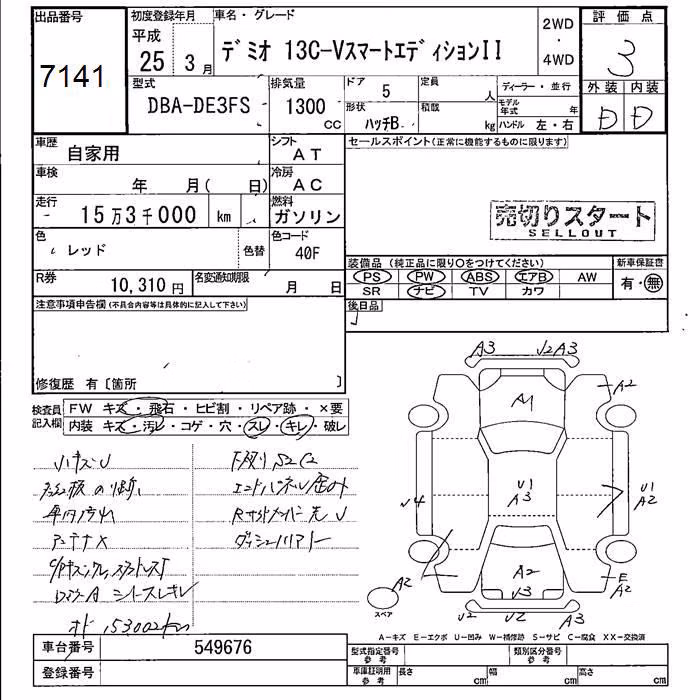 出品番号
7141
初度登録年月
平成
25 3月
車名・グレード
デミオ 13C-VスマートエディションII
2WD
・
4WD
評価点
3
外装 内装
D D
型式
DBA-DE3FS
排気量
1300
CC
ドア
5
定員
人
形状
ハッチB
積載
kg
ディーラー・並行
モデル年式 年
ハンドル 左・右
車歴
自家用
シフト
AT
車検
年 月( 日)
冷房
AC
走行
15万3千000 km
燃料
ガソリン
色
レッド
色替
色コード
40F
R券
10,310円
名変通知期限
月 日
セールスポイント(正常に機能するものに限ります)
売切りスタート
SELLOUT
装備品(純正品に限り〇をつけてください)
PS PW ABS エアB AW
SR ナビ TV カワ
新車保証書
有・無
後日品
注意事項申告欄(不具合内容等は具体的に記入して下さい)
修復歴 有〔箇所 〕
検査員記入欄
FW キズ・飛石・ヒビ割・リペア跡・×要
内装 キズ・汚レ・コゲ・穴・スレ・キレ・破レ
小キズU
下廻りS2C2
アンテナX
A3
√2A3
A2
A1
U1
A3
U1
A2
√4
A2
A2
√3
E
A2
√2
√2
A3
スペア
A-キズ E-エクボ U-凹み W-補修跡 S-サビ C-腐食 XX-交換済
車台番号 549676
登録番号
型式指定番号
参考
類別区分番号
参考
車庫証明用
参考
長さ cm 幅 cm 高さ cm